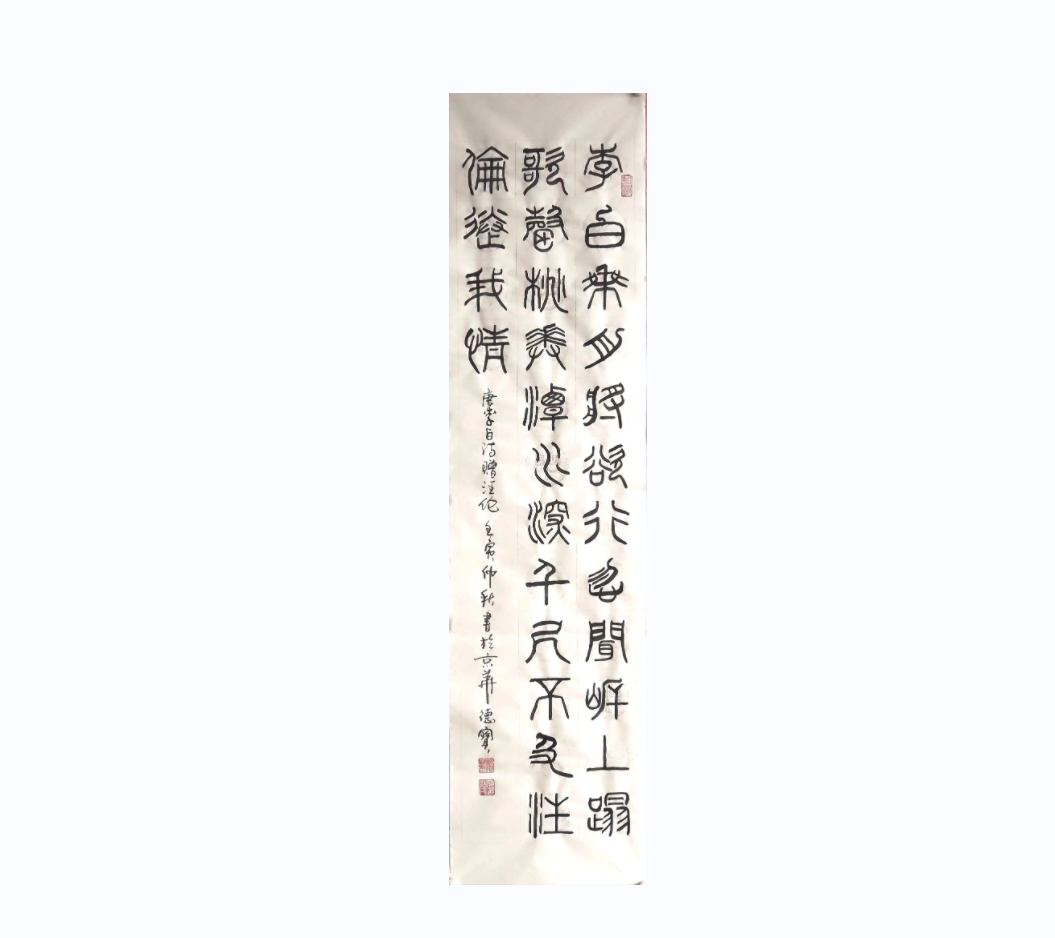 李白乘舟將欲行忽聞岸上蹋
歌聲桃花潭水深千尺不及汪
倫送我情
唐李白詩贈汪伦 壬寅仲秋書於京華 德寶